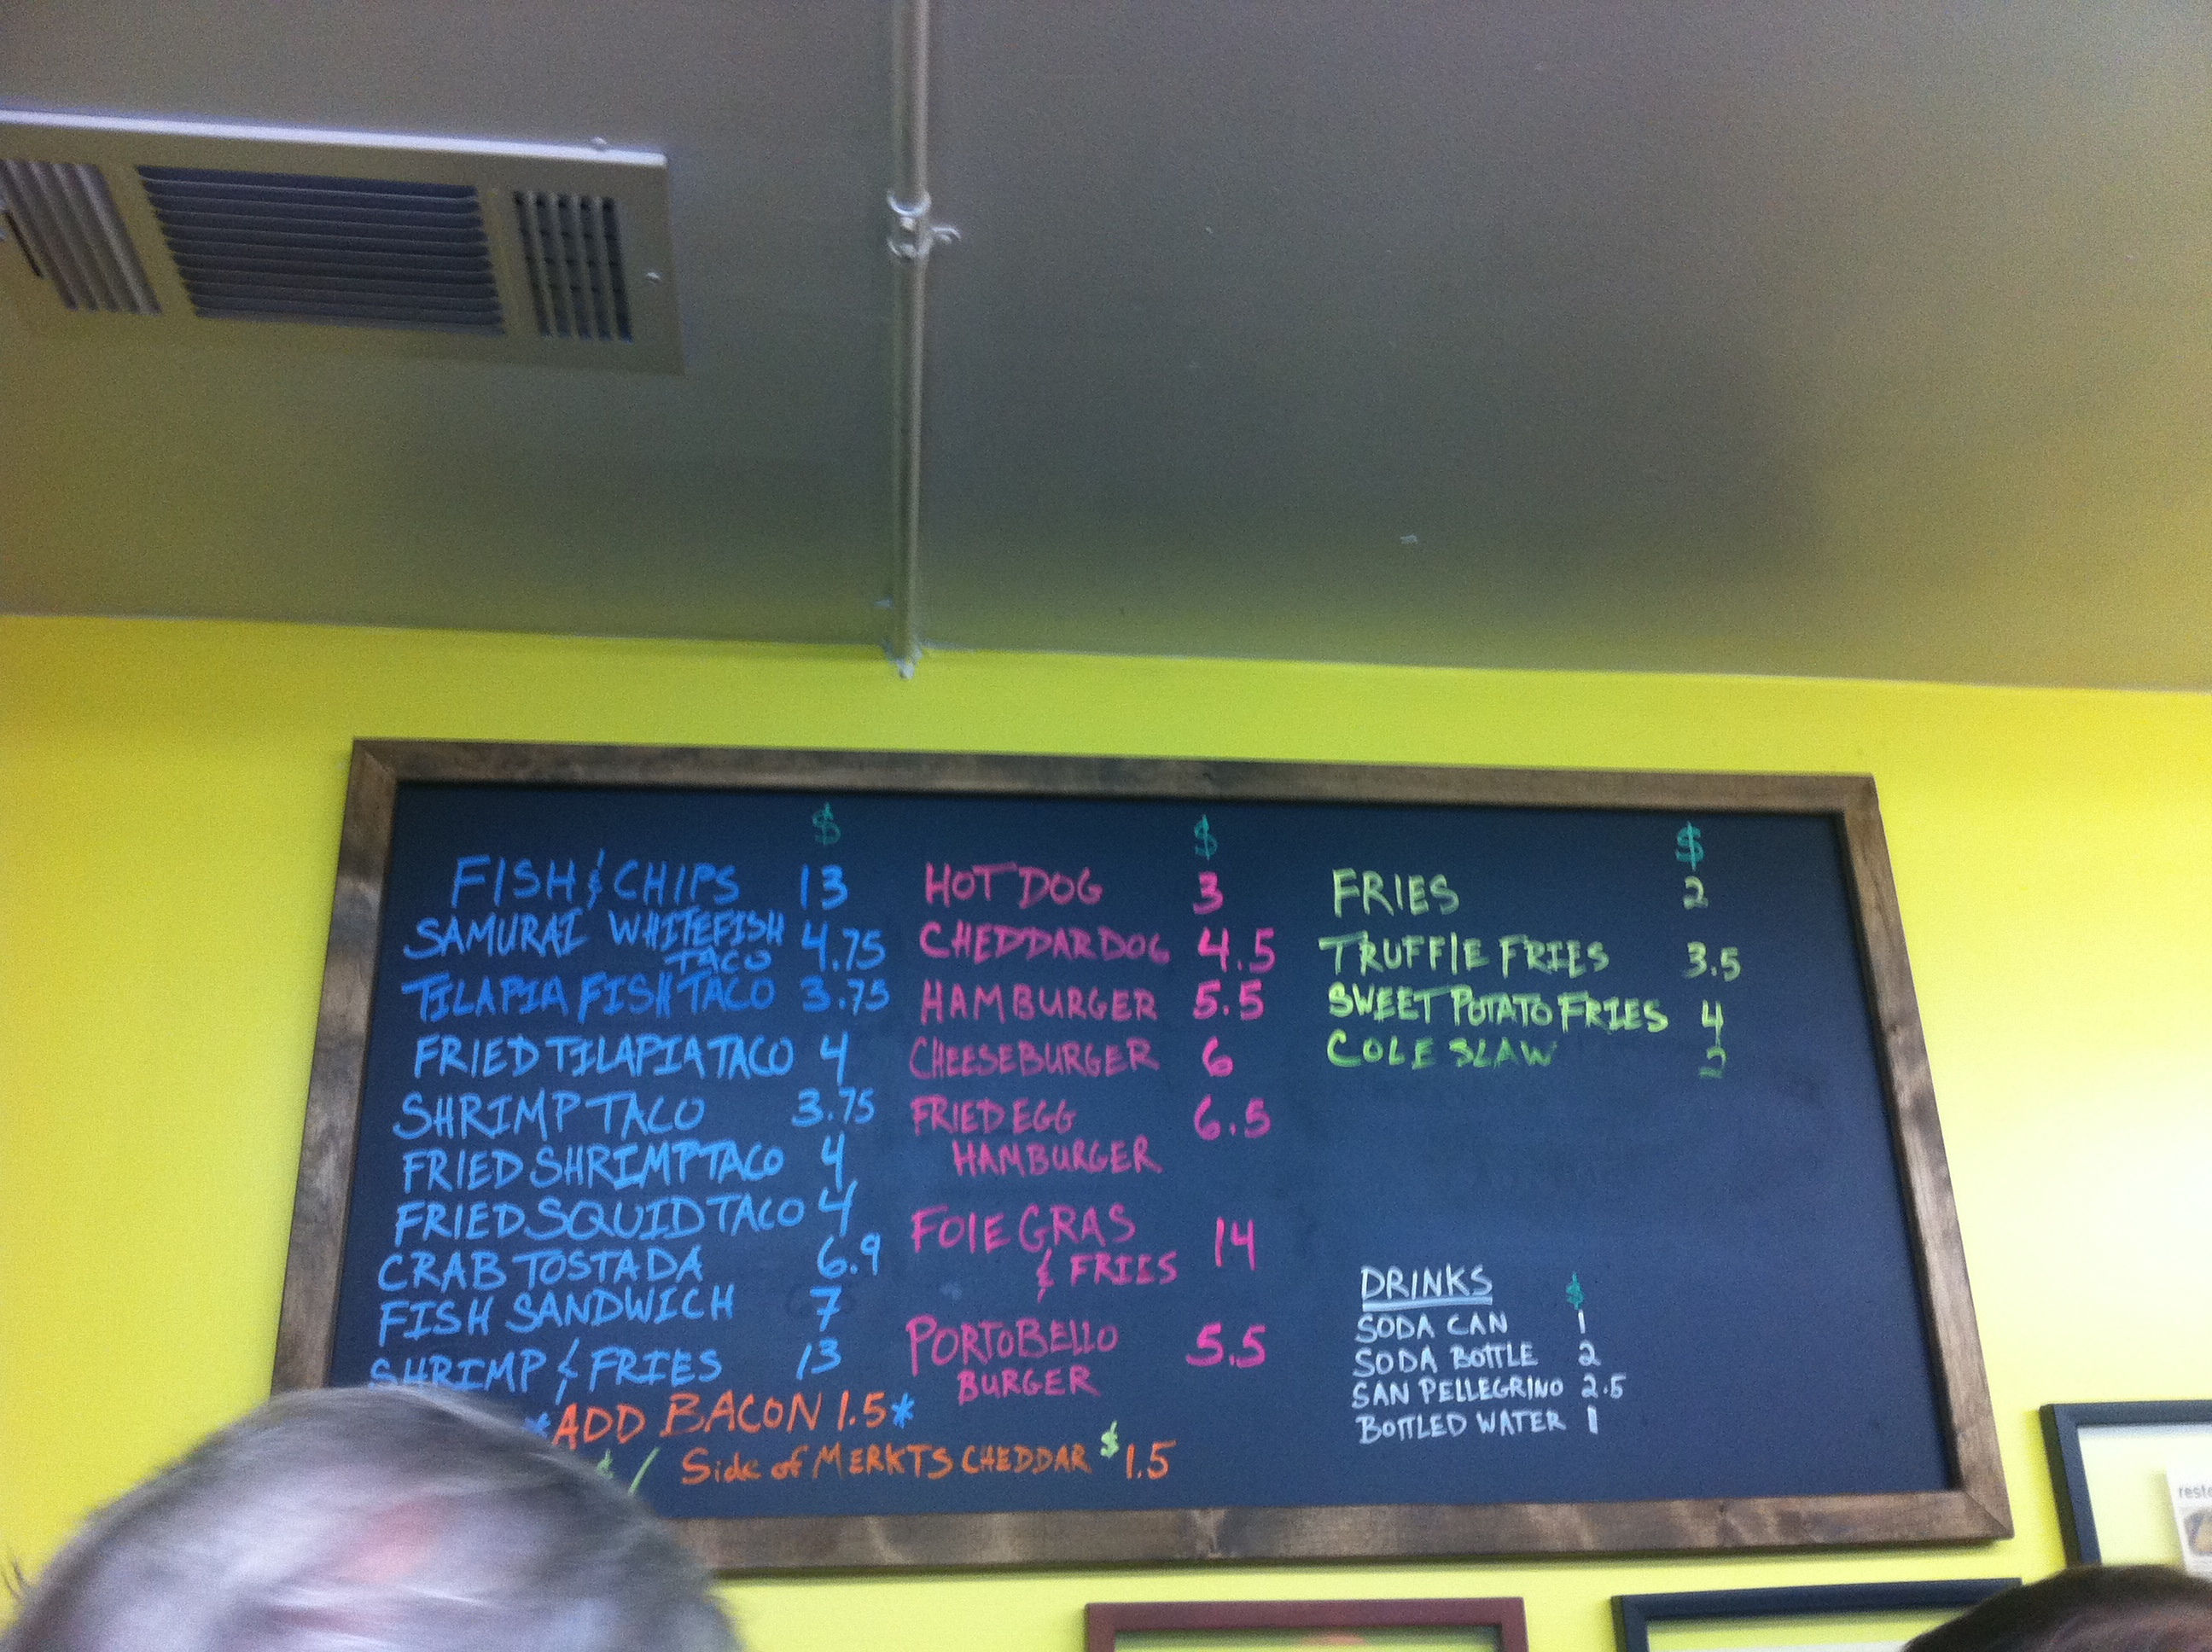 $
FISH & CHIPS 13
SAMURAI WHITEFISH
TACO 4.75
TILAPIA FISH TACO 3.75
FRIED TILAPIA TACO 4
SHRIMP TACO 3.75
FRIED SHRIMP TACO 4
FRIED SQUID TACO 4
CRAB TOSTADA 6.9
FISH SANDWICH 7
SHRIMP & FRIES 13
*ADD BACON 1.5*
/ Side of MERKTS CHEDDAR $1.5
$
HOT DOG 3
CHEDDAR DOG 4.5
HAMBURGER 5.5
CHEESEBURGER 6
FRIED EGG 6.5
HAMBURGER
FOIE GRAS 14
& FRIES
PORTOBELLO 5.5
BURGER
$
FRIES 2
TRUFFLE FRIES 3.5
SWEET POTATO FRIES 4
COLE SLAW 2
DRINKS $
SODA CAN 1
SODA BOTTLE 2
SAN PELLEGRINO 2.5
BOTTLED WATER 1